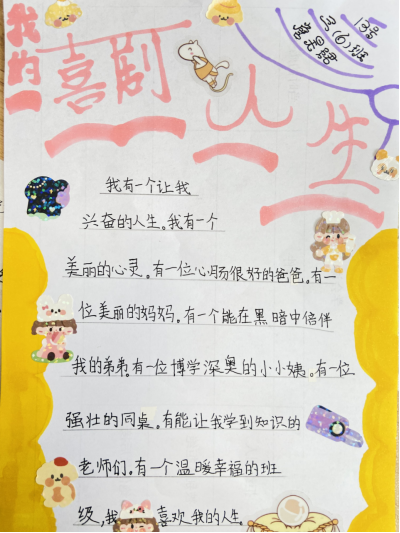 我的喜剧人生
13号
3(6)班
我有一个让我
兴奋的人生。我有一个
美丽的心灵。有一位心肠很好的爸爸。有一
位美丽的妈妈。有一个能在黑暗中倍伴
我的弟弟。有一位博学深奥的小小姨。有一位
强壮的同桌。有能让我学到知识的
老师们。有一个温暖幸福的班
级,我喜欢我的人生。